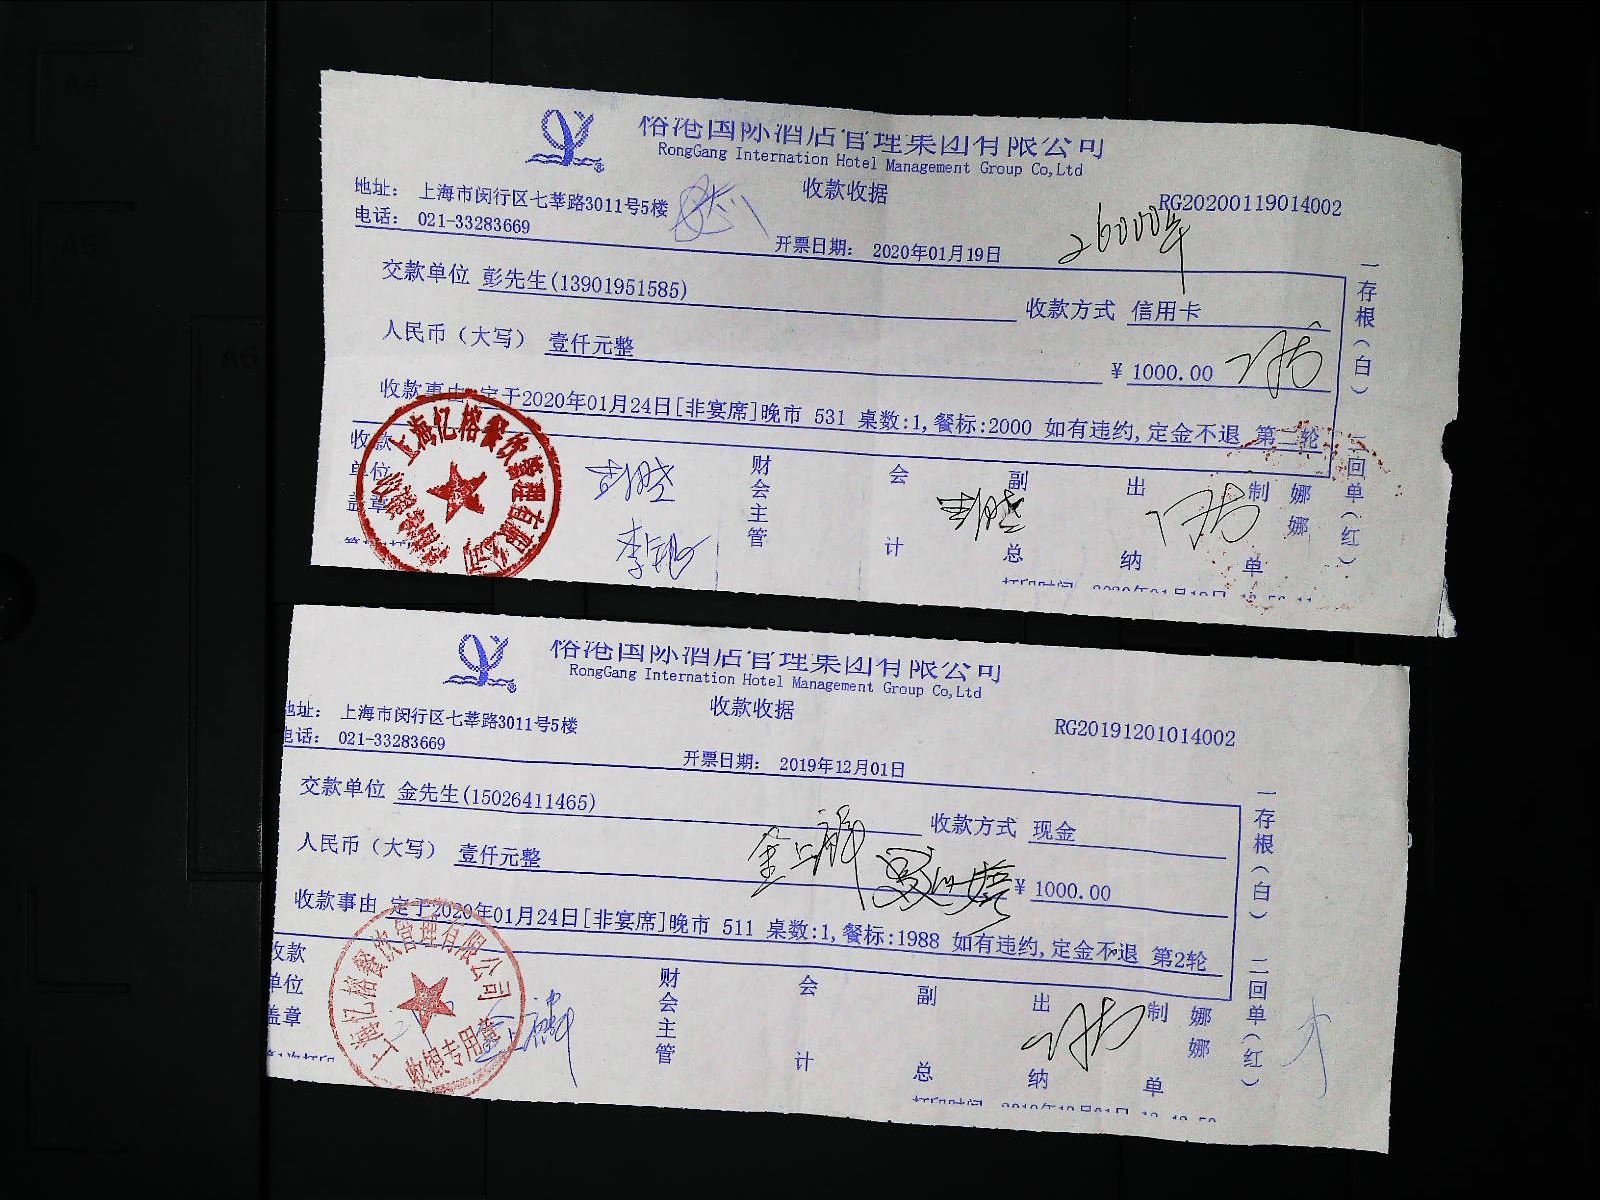 榕港国际酒店管理集团有限公司
RongGang Internation Hotel Management Group Co,Ltd
收款收据
地址： 上海市闵行区七莘路3011号5楼
RG20200119014002
电话： 021-33283669
开票日期： 2020年01月19日
26000年
交款单位 彭先生(13901951585)
收款方式 信用卡
人民币（大写） 壹仟元整
¥ 1000.00
收款事由 定于2020年01月24日[非宴席]晚市 531 桌数:1,餐标:2000 如有违约,定金不退 第二轮
收款单位盖章
财会主管
会计
副总
出纳
制单
娜娜
一存根（白）
二回单（红）
上海亿榕餐饮管理有限公司
榕港国际酒店管理集团有限公司
RongGang Internation Hotel Management Group Co,Ltd
收款收据
地址： 上海市闵行区七莘路3011号5楼
RG20191201014002
电话： 021-33283669
开票日期： 2019年12月01日
交款单位 金先生(15026411465)
收款方式 现金
人民币（大写） 壹仟元整
¥ 1000.00
收款事由 定于2020年01月24日[非宴席]晚市 511 桌数:1,餐标:1988 如有违约,定金不退 第2轮
收款单位盖章
财会主管
会计
副总
出纳
制单
娜娜
一存根（白）
二回单（红）
上海亿榕餐饮管理有限公司
收银专用章